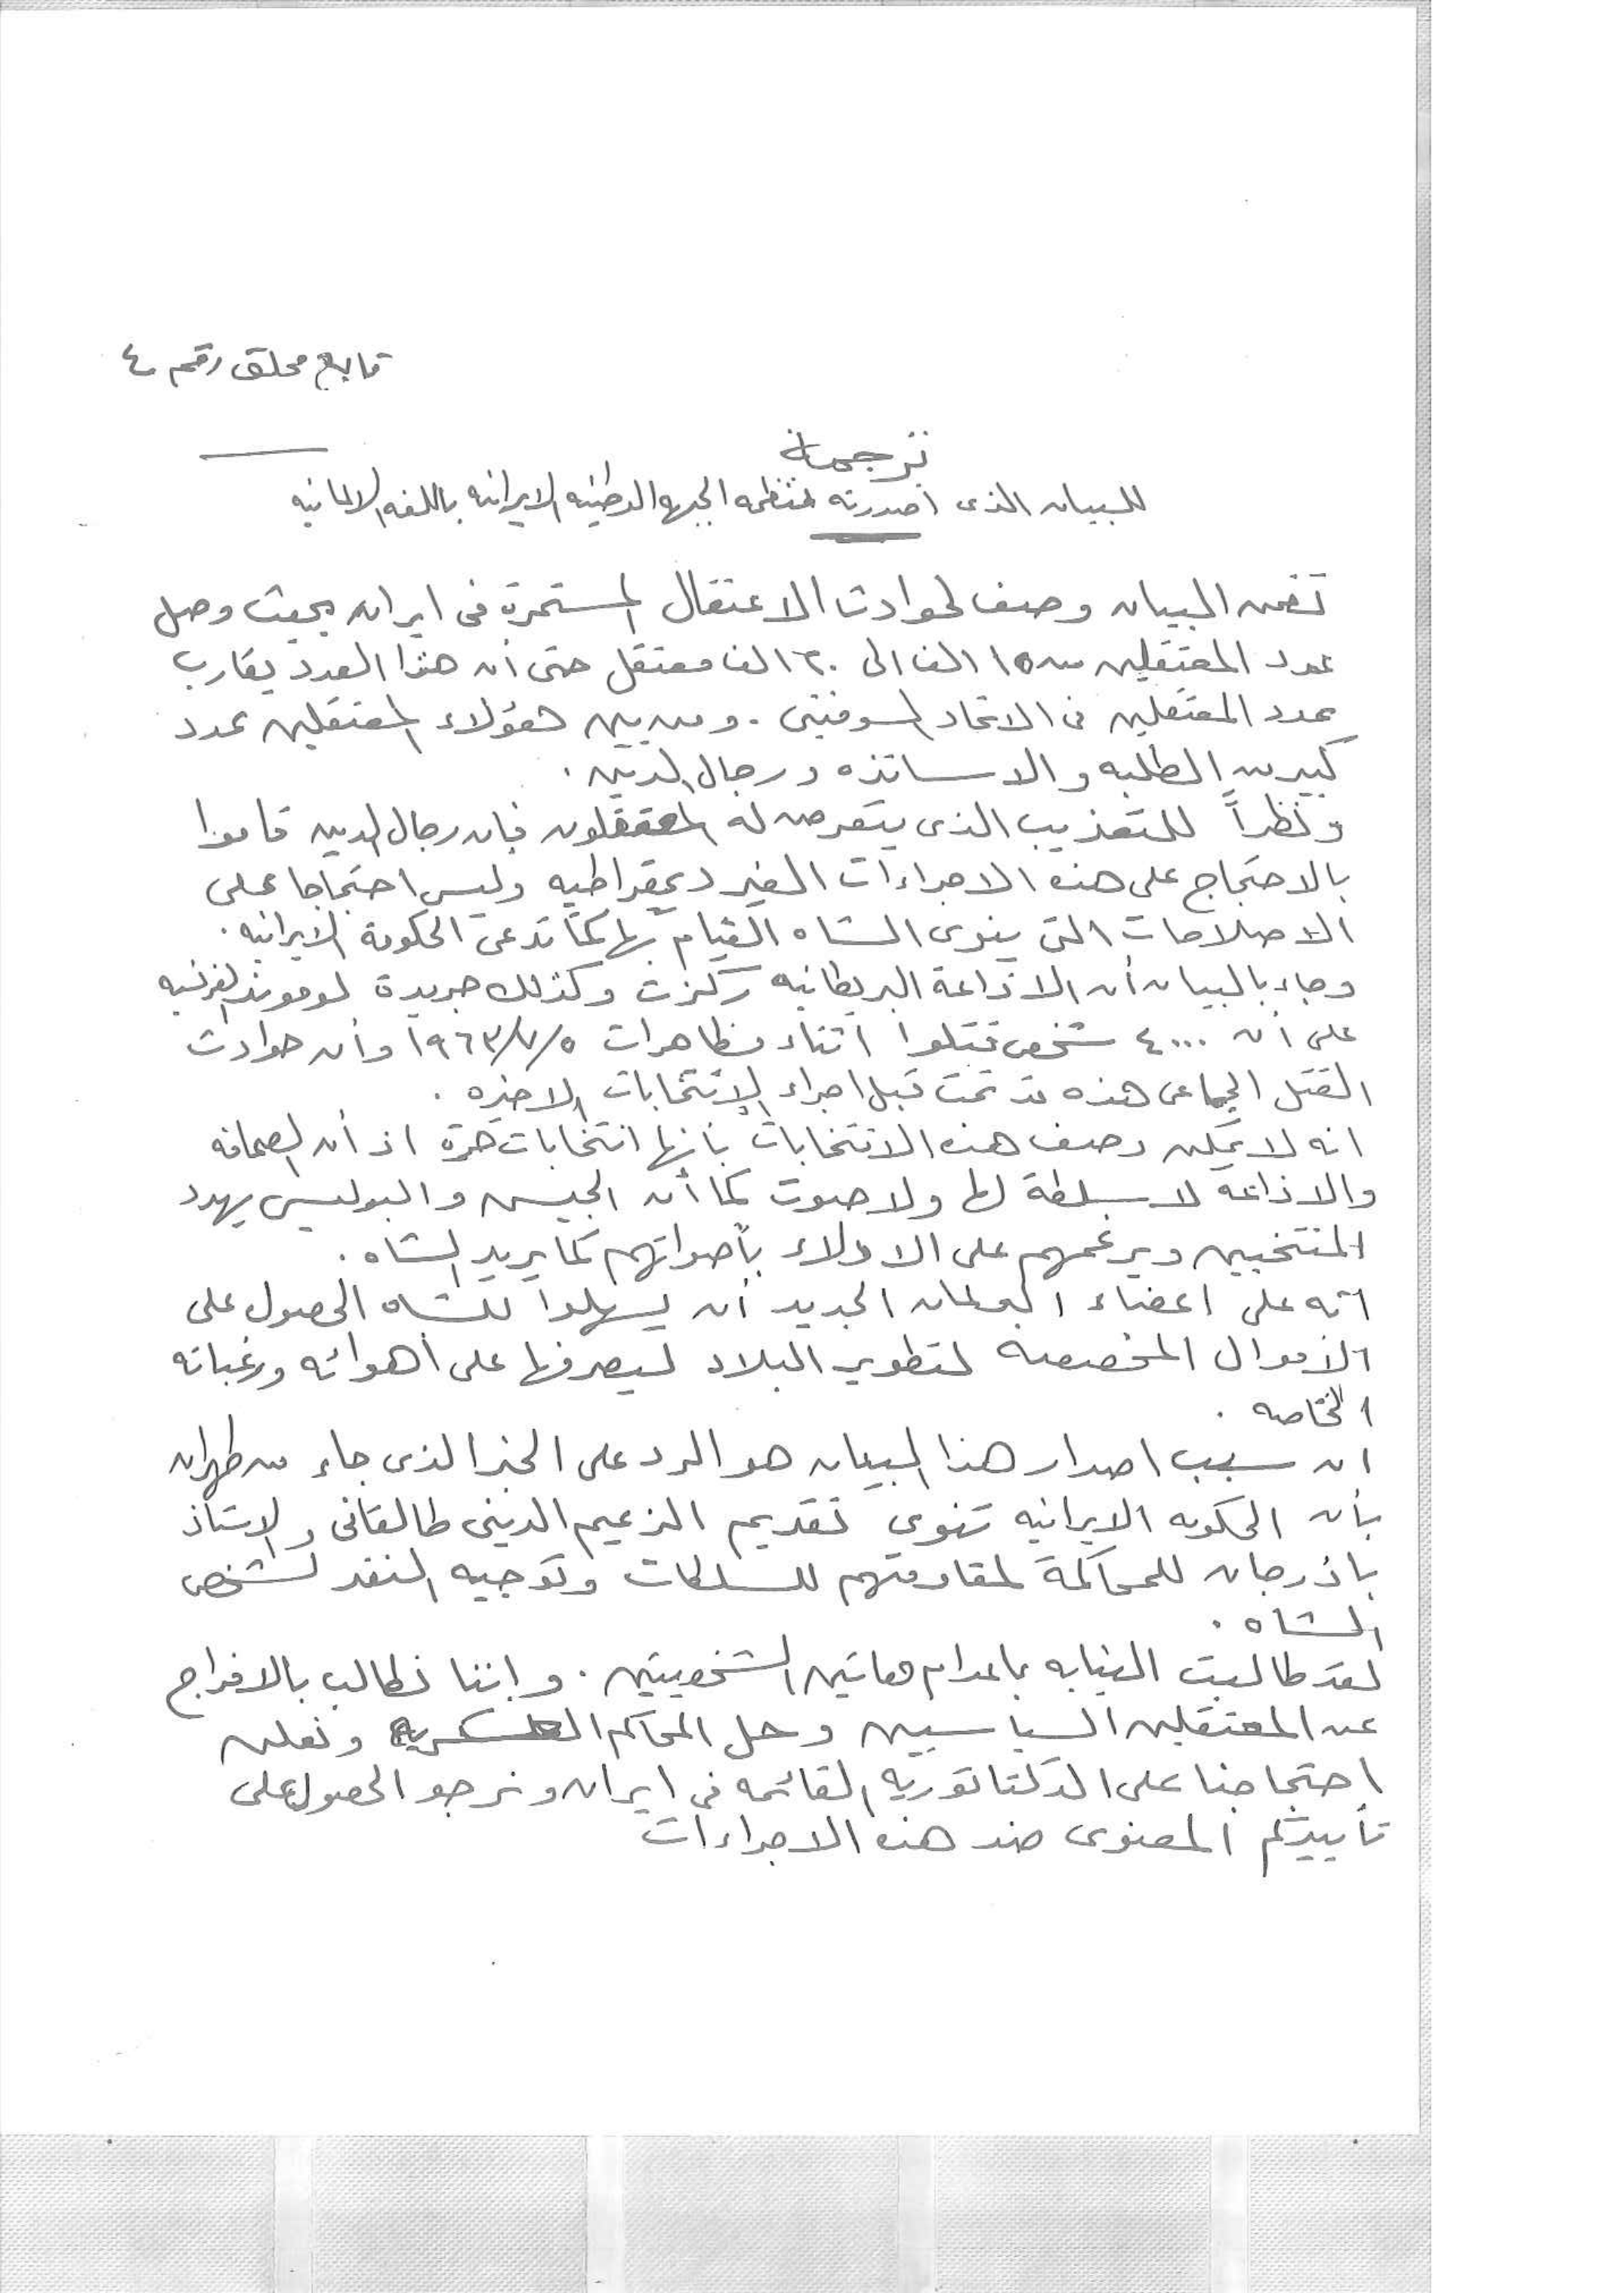 تابع محلق رقم ٤
ترجمة
للبيان الذى اصدرته منظمه الجبهه الوطنيه الايرانيه باللغه الالمانيه
تضمن البيان وصف لحوادث الاعتقال المستمرة فى ايران بحيث وصل
عدد المعتقلين من ١٥ الف الى ٢٠ الف معتقل حتى أن هذا العدد يقارب
عدد المعتقلين فى الاتحاد السوفيتى . ومن بين هؤلاء المعتقلين عدد
كبير من الطلبه والاساتذه ورجال الدين .
ونظراً للتعذيب الذى يتعرض له المعتقلون فان رجال الدين قاموا
بالاحتجاج على هذه الاجراءات الغير ديمقراطيه وليس احتجاجا على
الاصلاحات التى ينوى الشاه القيام بها كما تدعى الحكومة الايرانيه .
وجاء بالبيان أن الاذاعة البريطانيه ركزت وكذلك جريدة لوموند الفرنسيه
على أن ٤٠٠٠ شخص قتلوا اثناء مظاهرات ١٩٦٣/٧/٥ وأن حوادث
القتل الجماعى هذه قد تمت قبل اجراء الانتخابات الاخيره .
انه لا يمكن وصف هذه الانتخابات بأنها انتخابات حرة اذ أن الصحافه
والاذاعة لا سلطة لها ولا صوت كما أن الجيش والبوليس يهدد
المنتخبين ويرغمهم على الادلاء بأصواتهم كما يريد الشاه .
انه على اعضاء البرلمان الجديد أن يسهلوا للشاه الحصول على
الاموال المخصصه لتطوير البلاد ليصرفها على أهوائه ورغباته
الخاصه .
ان سبب اصدار هذا البيان هو الرد على الخبر الذى جاء من طهران
بأن الحكومه الايرانيه تنوى تقديم الزعيم الدينى طالقانى والاستاذ
باذرجان للمحاكمة لمقاومتهم للسلطات وتوجيه النقد لشخص
الشاه .
لقد طالبت النيابه باعدام هاتين الشخصيتين . واننا نطالب بالافراج
عن المعتقلين السياسيين وحل المحاكم العسكريه ونعلن
احتجاجنا على الدكتاتوريه القائمه فى ايران ونرجو الحصول على
تأييدكم المعنوى ضد هذه الاجراءات